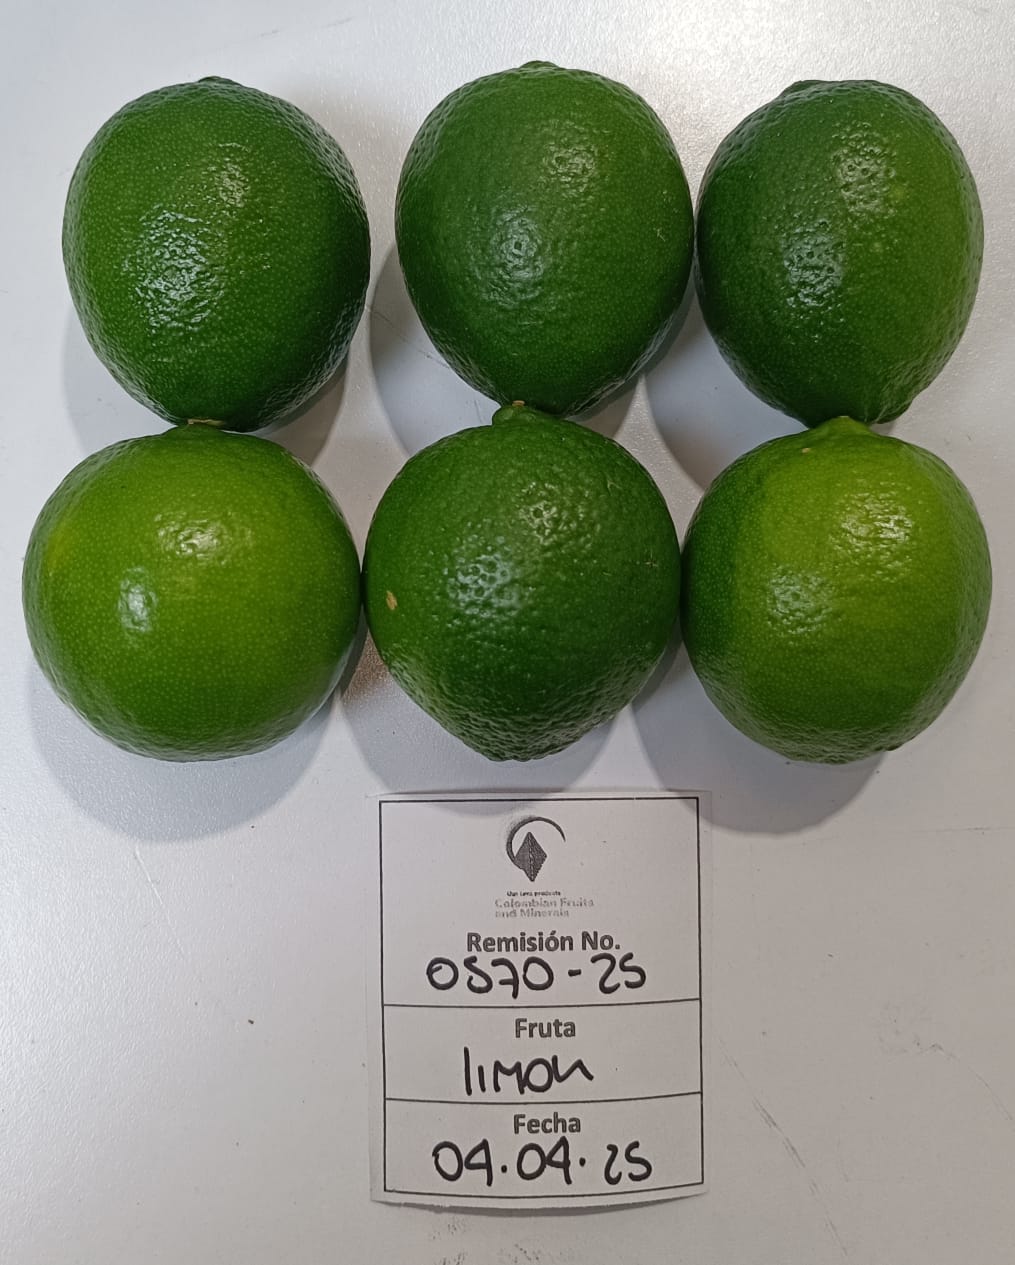 Colombian Fruits
and Minerals
Remisión No.
0570-25
Fruta
limon
Fecha
04.04.25